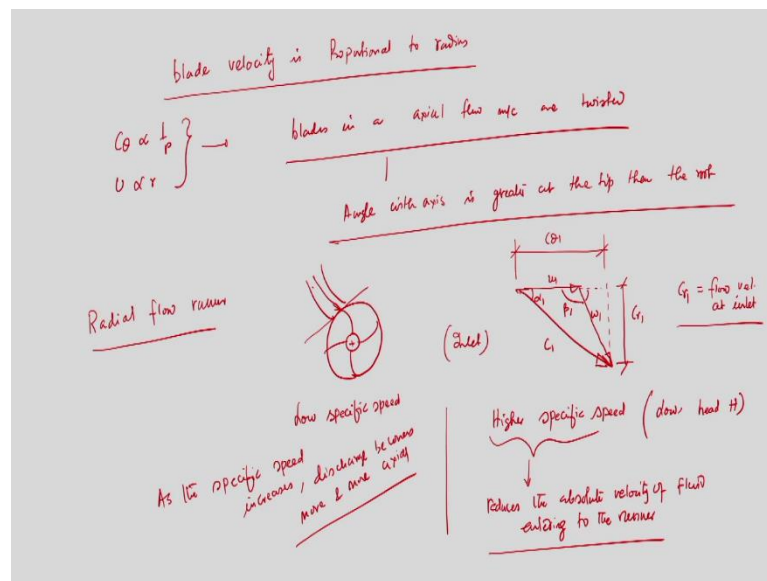 blade velocity is Propotional to radius
Cθ ∝ 1/r
U ∝ r
blades in a axial flow m/c are twisted
Angle with axis is greater at the tip than the root
Radial flow runner
(Inlet)
Cθ1
u1
α1
β1
ω1
C1
Cr1
Cr1 = flow vel.
at inlet
Low specific speed
As the specific speed
increases, discharge becomes
more & more axial
Higher specific speed (Low head H)
reduces the absolute velocity of fluid
entering to the runner